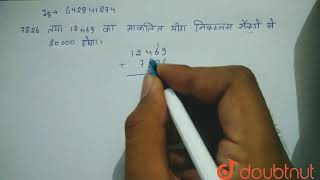 Ig→ 642841274
7826 तथा 12469 का आकलित योग निकटतम सैकड़ों से
20,000 होगा।
1
12469
+ 7
doubtnut